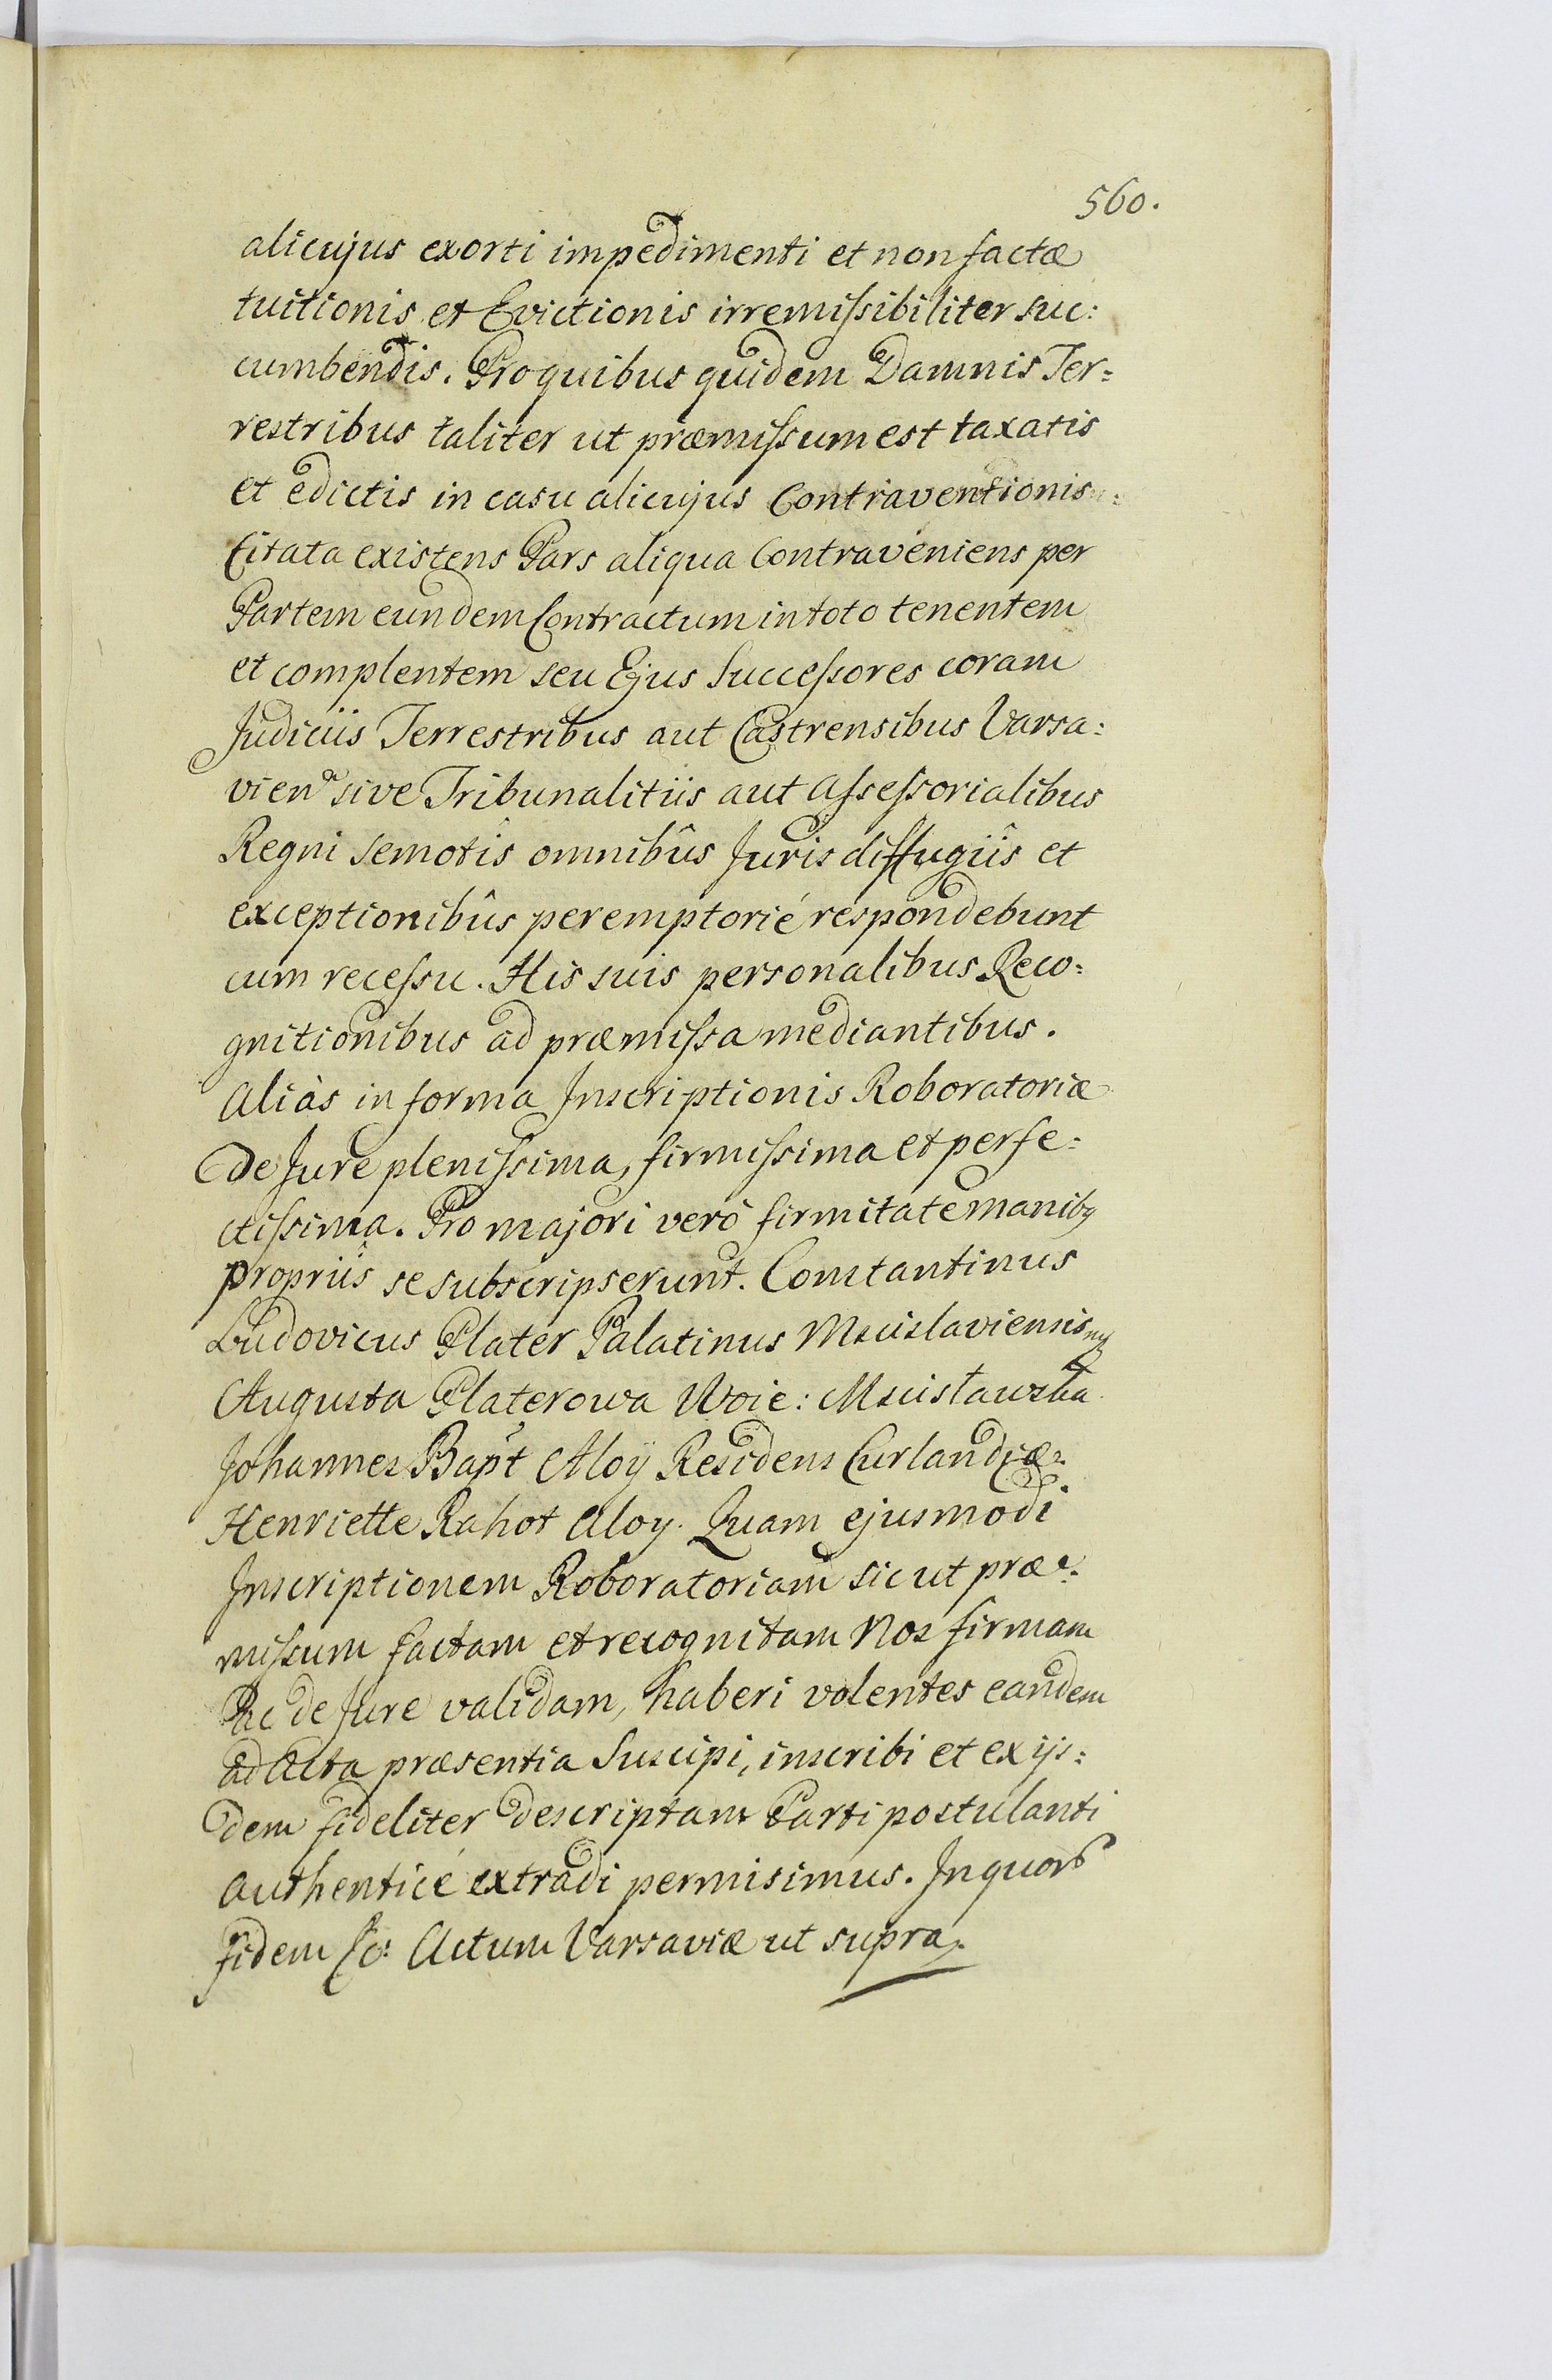 560.
alicujus exorti impedimenti et non factæ
tuitionis et Evictionis irremissibiliter suc:
cumbendis. Pro quibus quidem Damnis Ter:
restribus taliter ut præmissum est taxatis
et edictis in casu alicujus Contraventionis
Citata existens Pars aliqua Contraveniens per
Partem eundem Contractum in toto tenentem
et complentem seu Ejus Successores coram
Judiciis Terrestribus aut Castrensibus Varsa:
vien sive Tribunalitiis aut Assessorialibus
Regni semotis omnibûs Juris diffugiîs et
exceptionibûs peremptorié respondebunt
cum recessu. His suis personalibus Reco:
gnitionibus ad præmissa mediantibus.
Aliàs in forma Inscriptionis Roboratoriæ
de Jure plenissima, firmissima et perfe:
ctissima. Pro majori verò firmitate manibq
propriîs se subscripserunt. Constantinus
Ludovicus Plater Palatinus Mscislaviensis mp
Augusta Platerowa Woie: Mscisławska
Johannes Bapt Aloy Residens Curlandiæ:
Henriette Rahot Aloy. Quam ejusmodi
Inscriptionem Roboratoriam sicut præ:
missum factam et recognitam Nos firmam
ac de Jure validam, haberi volentes eandem
ad Acta præsentia Suscipi, inscribi et ex ijs:
dem fideliter descriptam Parti postulanti
authenticé extradi permisimus. In quor
fidem &c: Actum Varsaviæ ut supra.